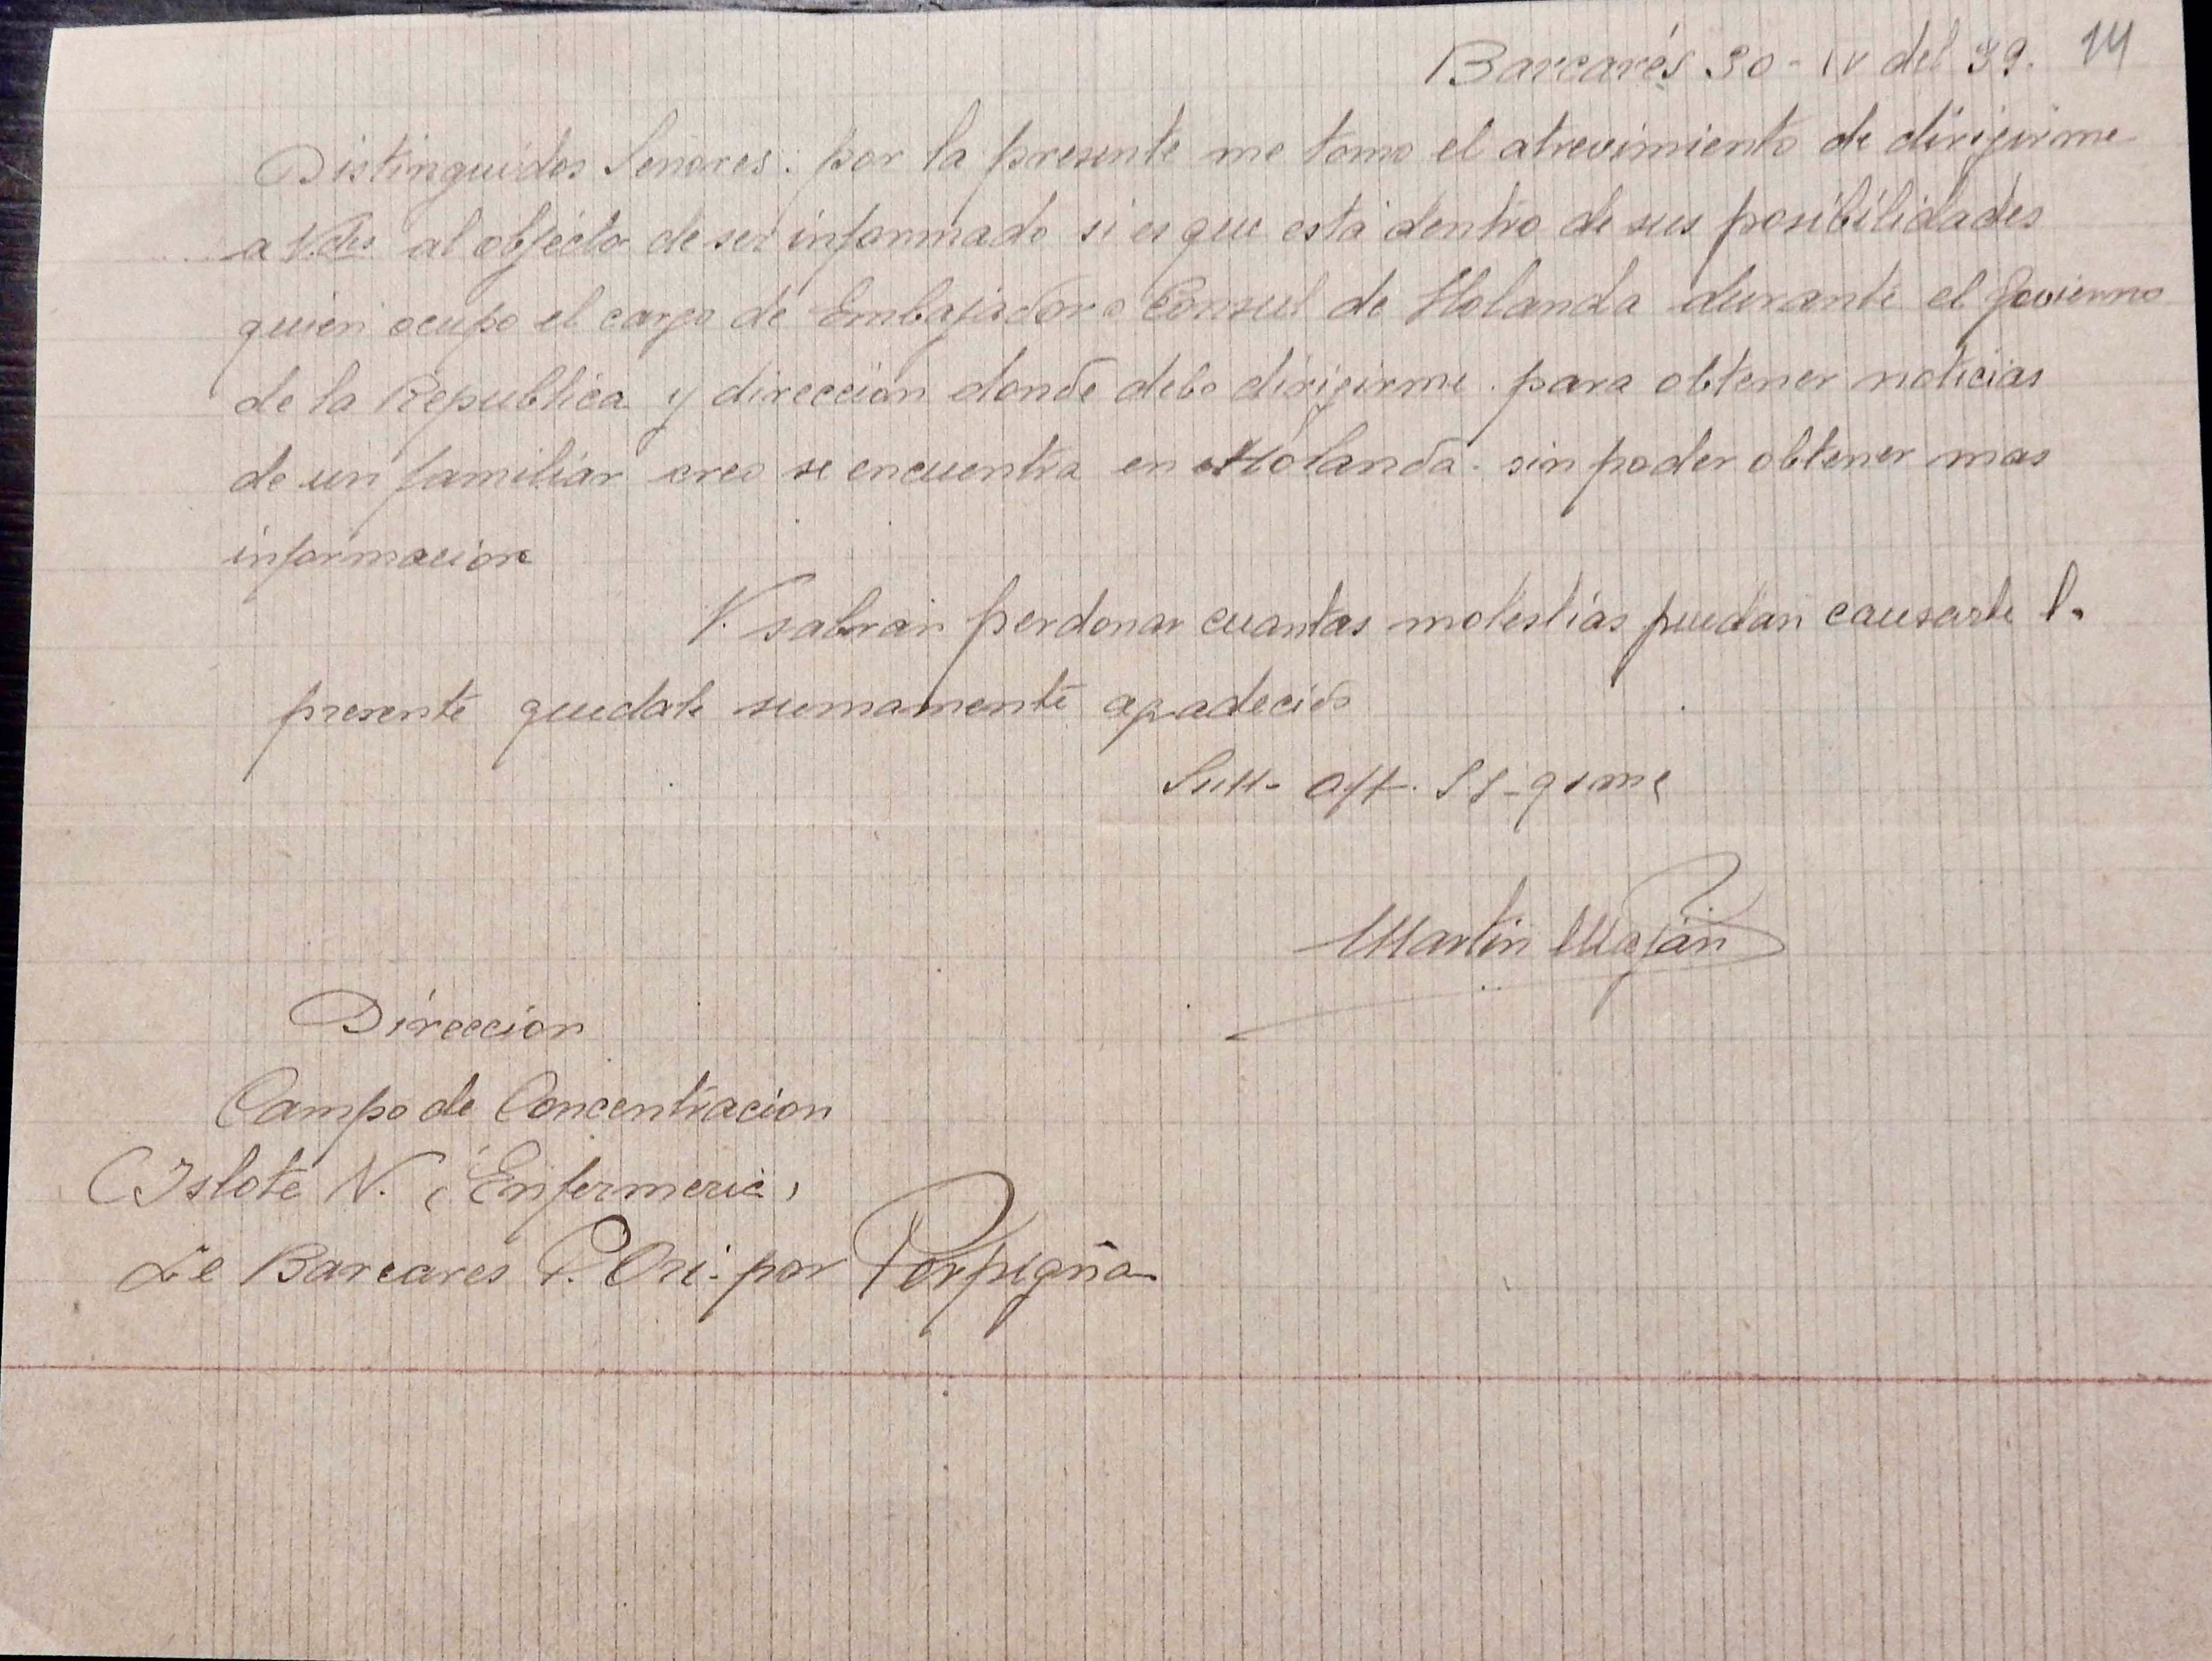 Barcarés 30-IV del 39. 14
Distinguidos Señores: por la presente me tomo el atrevimiento de dirigirme
a Vdes al objécto de ser informado si es que está dentro de sus posibilidades
quien ocupo el cargo de Embajador o Consul de Holanda durante el Govierno
de la Republica y direccion donde debo dirigirme. para obtener noticias
de un familiar creo se encuentra en Holanda. sin poder obtener mas
informacion
V. sabran perdonar cuantas molestias puedan causarle la
presente quedale sumamente agradecido
aff. SS-
Martin Maján
Direccion
Campo de Concentracion
Islote N. (Enfermeria)
Le Barcares P. Ori. por Perpigña